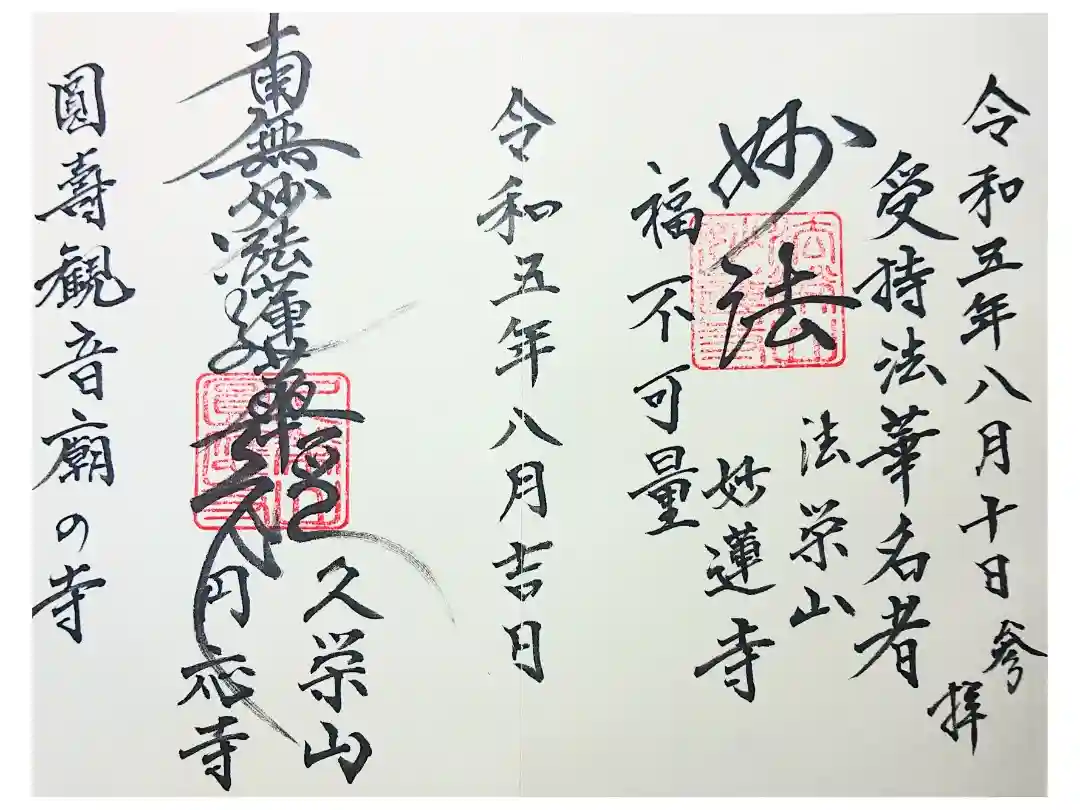 令和五年八月十日
参拝
受持法華名者
妙法
福不可量
法栄山
妙蓮寺
令和五年八月吉日
南無妙法蓮華経
久栄山
円応寺
圓壽観音廟の寺